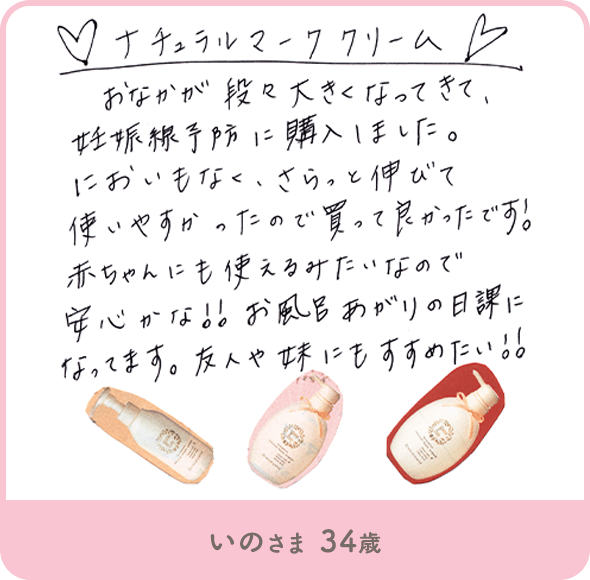 ♡ナチュラルマーククリーム♡
おなかが段々大きくなってきて、
妊娠線予防に購入しました。
においもなく、さらっと伸びて
使いやすかったので買って良かったです!
赤ちゃんにも使えるみたいなので
安心かな!! お風呂あがりの日課に
なってます。友人や妹にもすすめたい!!
いのさま 34歳